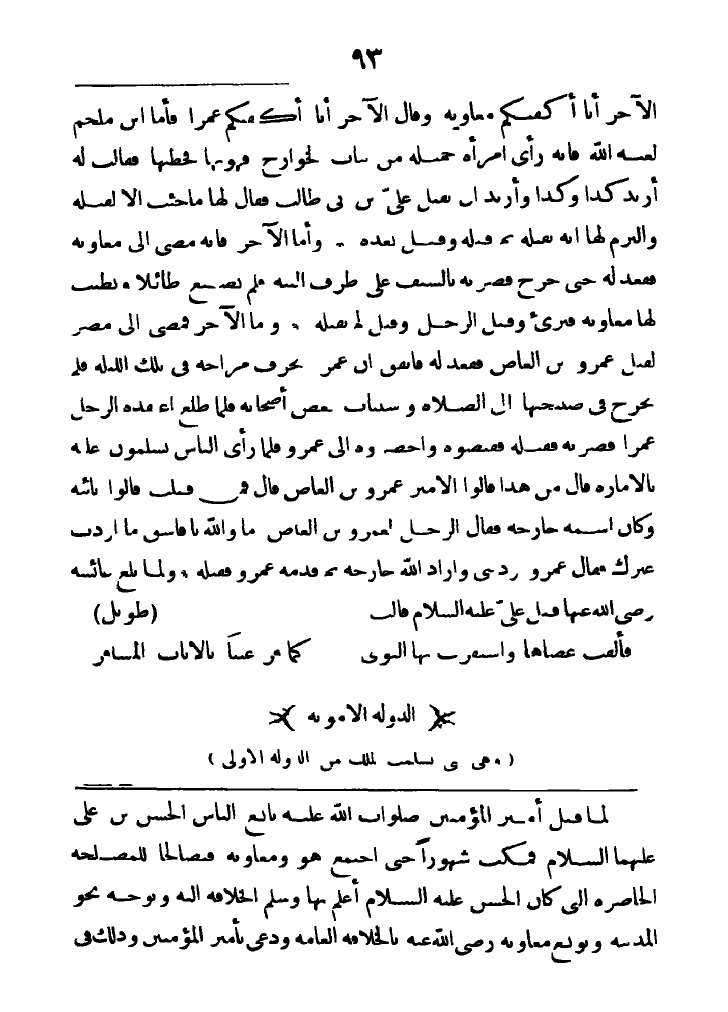 ٩٣
الآخر أنا أكفيكم معاوية وقال الآخر أنا أكفيكم عمرا فأما ابن ملجم
لعنه الله فانه رأى امرأة جميلة من بنات الخوارج فهويها فخطبها فقالت له
أريد كذا وكذا وأريد أن تقتل عليّ بن أبي طالب فقال لها ما جئت الا لقتله
والتزم لها انه يقتله ثم قتله وقتل بعده . وأما الآخر فانه مضى الى معاوية
فقعد له حتى خرج فضربه بالسيف على طرف اليته فلم يصنع طائلا وتطبب
لها معاوية فبرئ وقتل الرجل وقيل لم يقتله . وأما الآخر فمضى الى مصر
لقتل عمرو بن العاص فقعد له فاتفق ان عمر انحرف مزاجه في تلك الليلة فلم
يخرج في صبيحتها الى الصلاة واستناب بعض أصحابه فلما طلع اعتقده الرجل
عمرا فضربه فقتله فقبضوه وأحضروه الى عمرو فلما رأى الناس يسلمون عليه
بالامارة قال من هذا قالوا الامير عمرو بن العاص قال فمن قتلت قالوا نائبه
وكان اسمه خارجة فقال الرجل لعمرو بن العاص أما والله يا فاسق ما أردت
غيرك فقال عمرو أردتني وأراد الله خارجة ثم قدمه عمرو فقتله . ولما بلغ عائشة
رضى الله عنها قتل عليّ عليه السلام قالت (طويل)
فألقت عصاها واستقرت بها النوى كما قر عيناً بالاياب المسافر
الدولة الاموية
(وهي التي تسلمت الملك من الدولة الاولى)
لما قتل أمير المؤمنين صلوات الله عليه بايع الناس الحسن بن على
عليهما السلام فمكث شهوراً حتى اجتمع هو ومعاوية فتصالحا للمصلحة
الحاضرة التي كان الحسن عليه السلام أعلم بها وسلم الخلافة اليه وتوجه نحو
المدينة وبويع معاوية رضى الله عنه بالخلافة العامة ودعى بأمير المؤمنين وذلك في